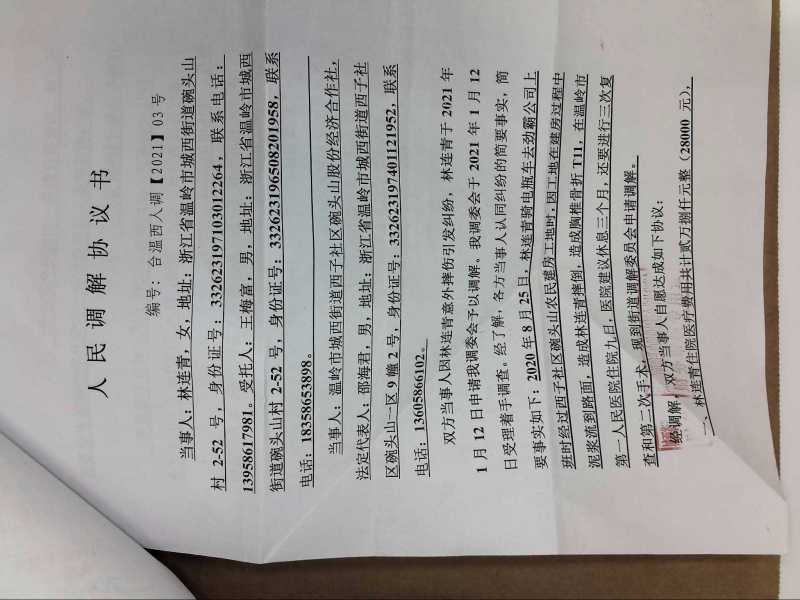 人民调解协议书
编号：台温西人调【2021】03号
当事人：林连青，女，地址：浙江省温岭市城西街道碗头山
村 2-52 号，身份证号：332623197103012264，联系电话：
13958617981。受托人：王梅富，男，地址：浙江省温岭市城西
街道碗头山村 2-52 号，身份证号：332623196508201958，联系
电话：18358653898。
当事人：温岭市城西街道西子社区碗头山股份经济合作社，
法定代表人：邵海君，男，地址：浙江省温岭市城西街道西子社
区碗头山一区 9 幢 2 号，身份证号：332623197401121952，联系
电话：13605866102。
双方当事人因林连青意外摔伤引发纠纷，林连青于 2021 年
1 月 12 日申请我调委会予以调解。我调委会于 2021 年 1 月 12
日受理着手调查。经了解，各方当事人认同纠纷的简要事实，简
要事实如下：2020 年 8 月 25 日，林连青骑电瓶车去劲霸公司上
班时经过西子社区碗头山农民建房工地时，因工地在建房过程中
泥浆流到路面，造成林连青摔倒，造成胸椎骨折 T11，在温岭市
第一人民医院住院九日，医院建议休息三个月，还要进行三次复
查和第二次手术。现到街道调解委员会申请调解。
经调解，双方当事人自愿达成如下协议：
一、林连青住院医疗费用共计贰万捌仟元整（28000 元），